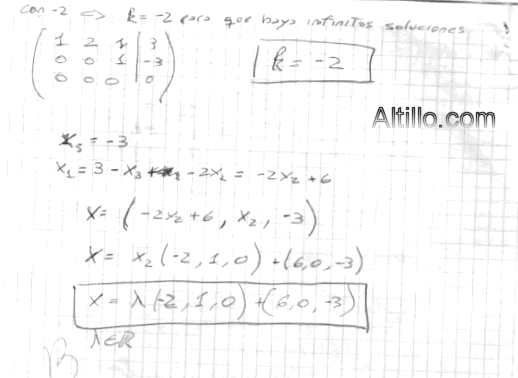 con -2 ⇔ k = -2 para que haya infinitas soluciones
( 1 2 1 | 3 )
( 0 0 1 | -3 )
( 0 0 0 | 0 )
k = -2
Altillo.com
X₃ = -3
X₁ = 3 - X₃ - 2X₂ = -2X₂ + 6
X = ( -2X₂ + 6 , X₂ , -3 )
X = X₂ (-2, 1, 0) + (6, 0, -3)
X = λ (-2, 1, 0) + (6, 0, -3)
λ ∈ ℝ